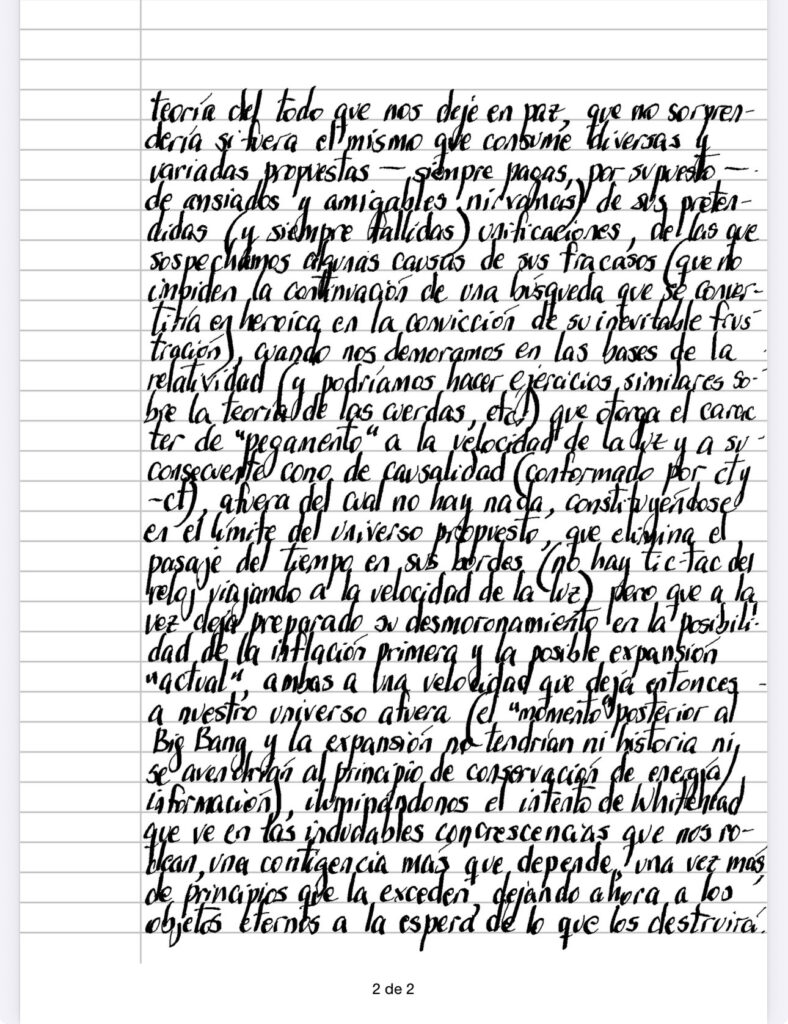 teoría del todo que nos deje en paz, que no sorpren-
dería si fuera el mismo que consume diversas y
variadas propuestas — siempre pagas, por supuesto —
de ansiados y amigables nirvanas) de sus preten-
didas (y siempre fallidas) unificaciones, de las que
sospechamos algunas causas de sus fracasos (que no
impiden la continuación de una búsqueda que se conver-
tiría en heroica en la convicción de su inevitable frus
tración), cuando nos demoramos en las bases de la
relatividad (y podríamos hacer ejercicios similares so-
bre la teoría de las cuerdas, etc.) que otorga el carac
ter de "pegamento" a la velocidad de la luz y a su
consecuente cono de causalidad (conformado por ct y
-ct), afuera del cual no hay nada, constituyéndose
en el límite del universo propuesto, que elimina el
pasaje del tiempo en sus bordes (no hay tic-tac del
reloj viajando a la velocidad de la luz) pero que a la
vez deja preparado su desmoronamiento en la posibili-
dad de la inflación primera y la posible expansión
"actual", ambas a una velocidad que deja entonces
a nuestro universo afuera (el "momento" posterior al
Big Bang y la expansión no tendrían ni historia ni
se avendrían al principio de conservación de energía/
información), iluminándonos el intento de Whitehead
que ve en las indudables concrescencias que nos ro-
dean, una contigencia más que depende, una vez más,
de principios que la exceden, dejando ahora a los
objetos eternos a la espera de lo que los destruirá.
2 de 2